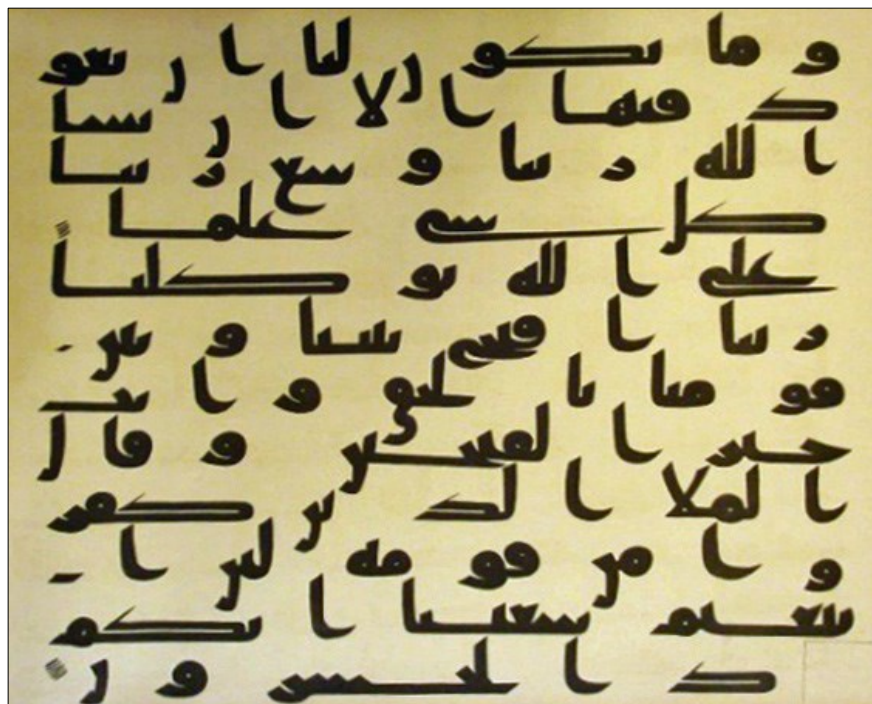 وما يكون لنا ان نعو
د فيها الا ان يشا
الله ربنا وسع ربنا
كل شي علما
على الله توكلنا
ربنا افتح بيننا وبين
قومنا بالحق وانت
خير الفتحين وقال
الملا الذين كفر
وا من قومه لين ا
تبعتم شعيبا انكم
ذا لخسرون